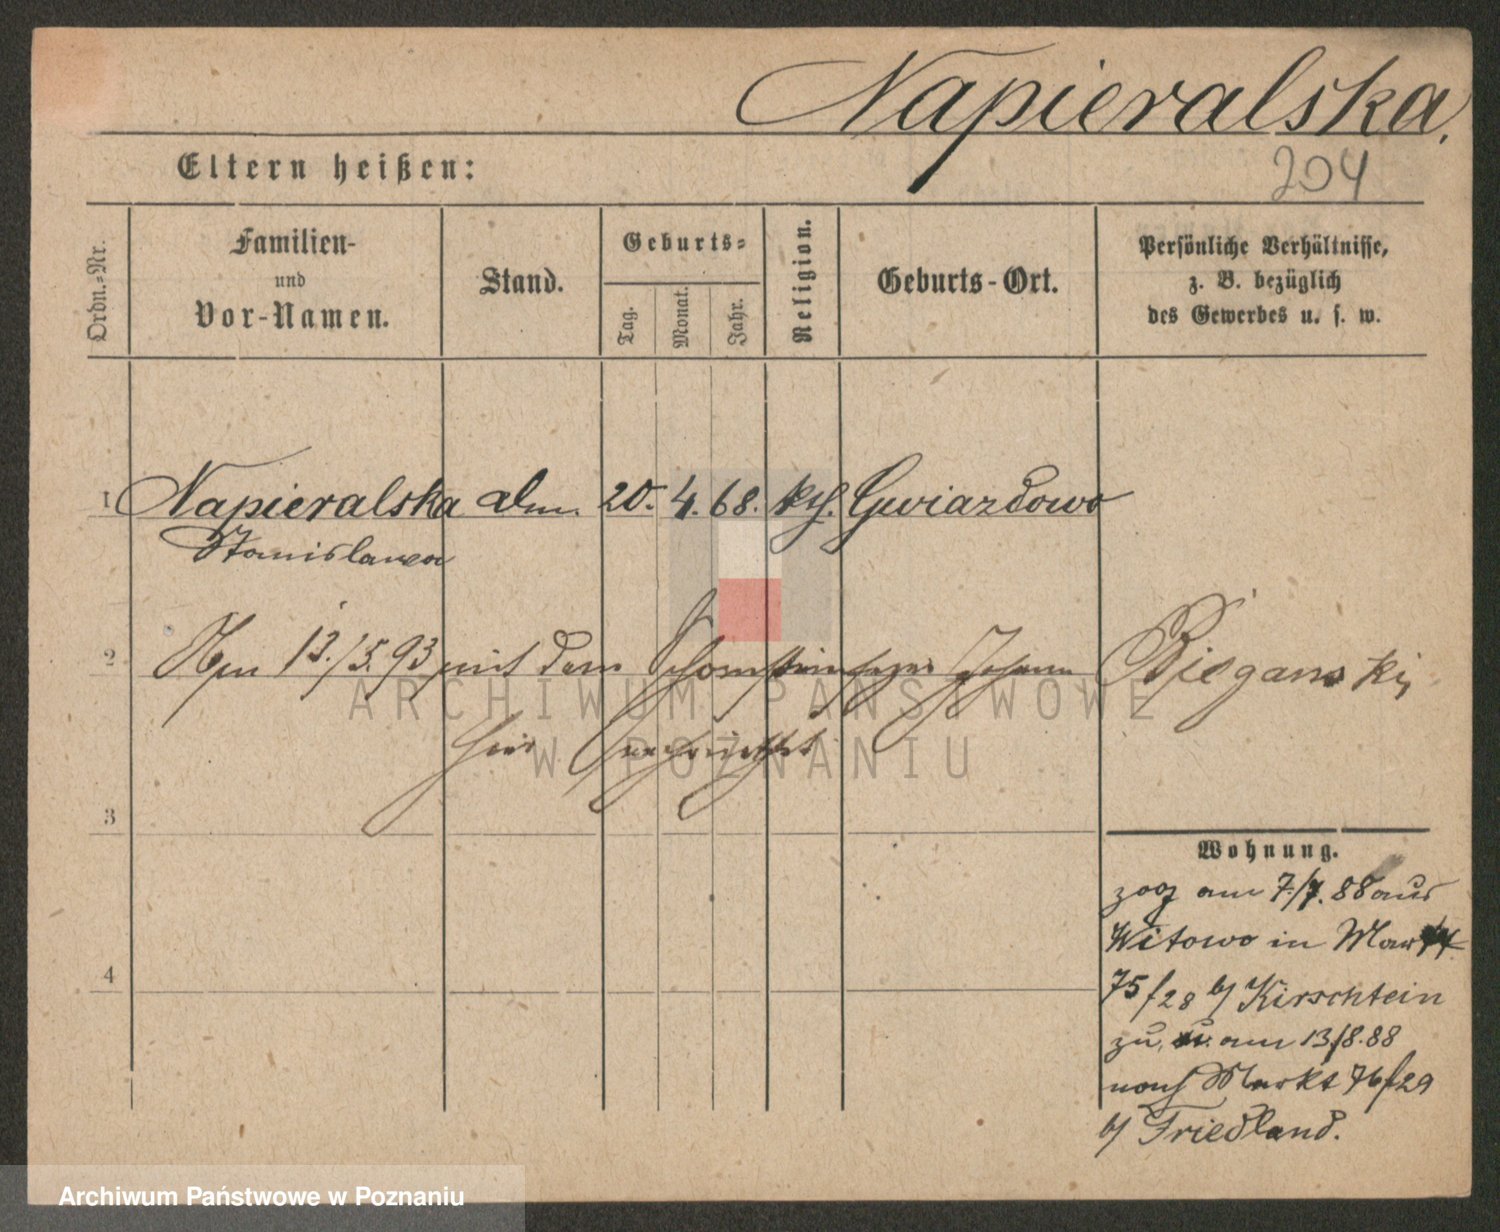 Napieralska.
204
Eltern heißen:
Ordn.-Nr.
Familien-
und
Vor-Namen.
Stand.
Geburts-
Tag.
Monat.
Jahr.
Religion.
Geburts-Ort.
Persönliche Verhältnisse,
z. B. bezüglich
des Gewerbes u. s. w.
1 Napieralska 20. 4. 68. kth. Gwiazdowo
Stanislawa
2 Am 13./5. 93 mit dem Schornsteinfeger Johann Bieganski,
hier
3
Wohnung.
zog am 7./7. 88 aus
Witowo in Markt
75/28 b/ Kirschtein
zu, am 13/8. 88
nach Markt 76/29
4
b/ Friedland.
ARCHIWUM PAŃSTWOWE
W POZNANIU
Archiwum Państwowe w Poznaniu